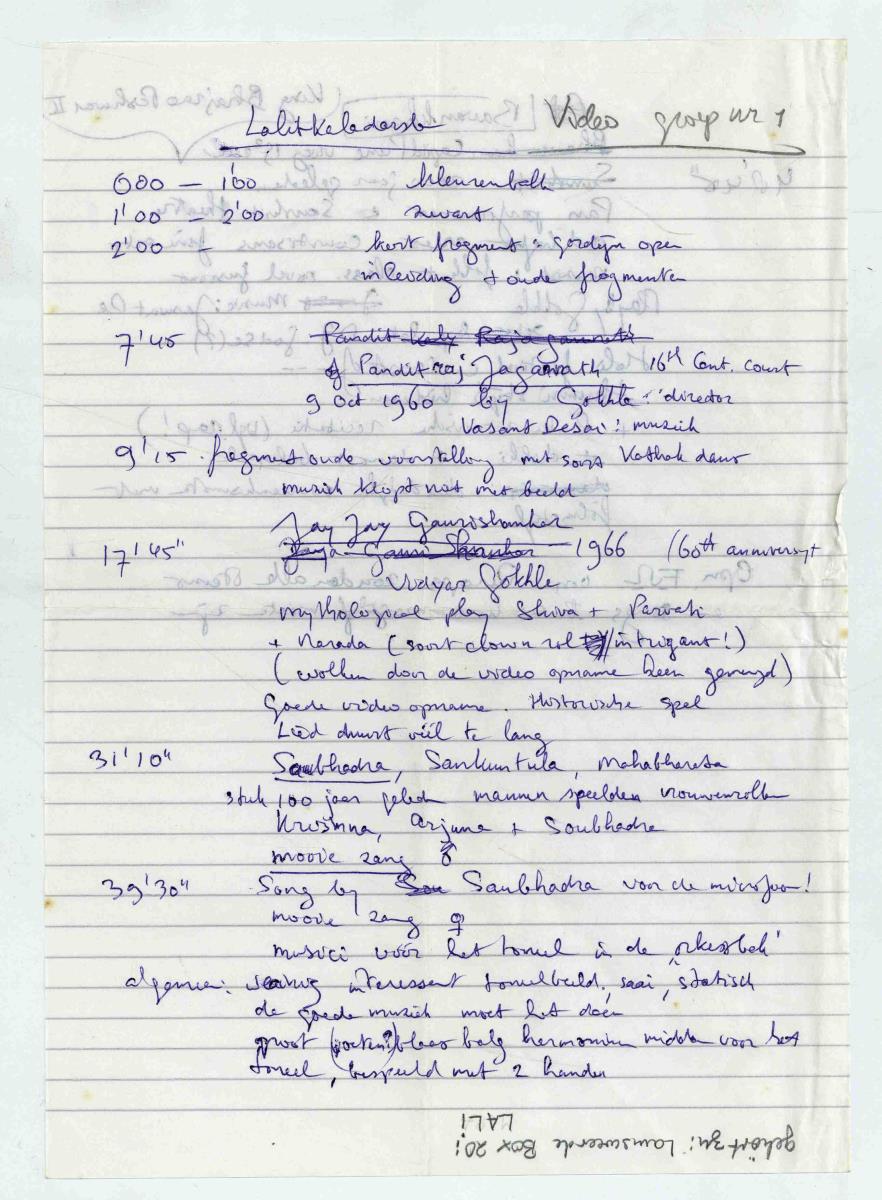 Lalitkaladarsh Video groep nr 1
000 – 1'00 kleurenbalk
1'00 – 2'00 zwart
2'00 – kort fragment: gordijn open
inleiding + oude fragmenten
7'45 Pandit
of Panditraj Jagannath 16th Cent. court
9 Oct 1960 by Gokhle: director
Vasant Desai: muziek
9'15 fragment oude voorstelling met soort Kathak dans
muziek klopt niet met beeld
Jay Jay Gaurishankar
17'45" Jaya Gauri Shankar 1966 (60th anniversary
Vidyar Gokhle
mythological play Shiva + Parvati
+ Narada (soort clown rol / intrigant!)
(wolken door de video opname heen gemengd)
Goede video opname. Historische spel
Lied duurt véél te lang
31'10" Saubhadra, Sankuntula, Mahabharata
stuk 100 jaar geleden mannen speelden vrouwenrollen
Krishna, Arjuna + Soubhadra
mooie zang ♂
39'30" Song by Saubhadra voor de microfoon!
mooie zang ♀
musici vóór het toneel in de "orkestbak"
algemeen: weinig interessant toneelbeeld, saai, statisch
de goede muziek moet het doen
groot blaasbalg harmonium midden voor het
toneel, bespeeld met 2 handen
gehört zu: Lamsweerde Box 20:
LALI